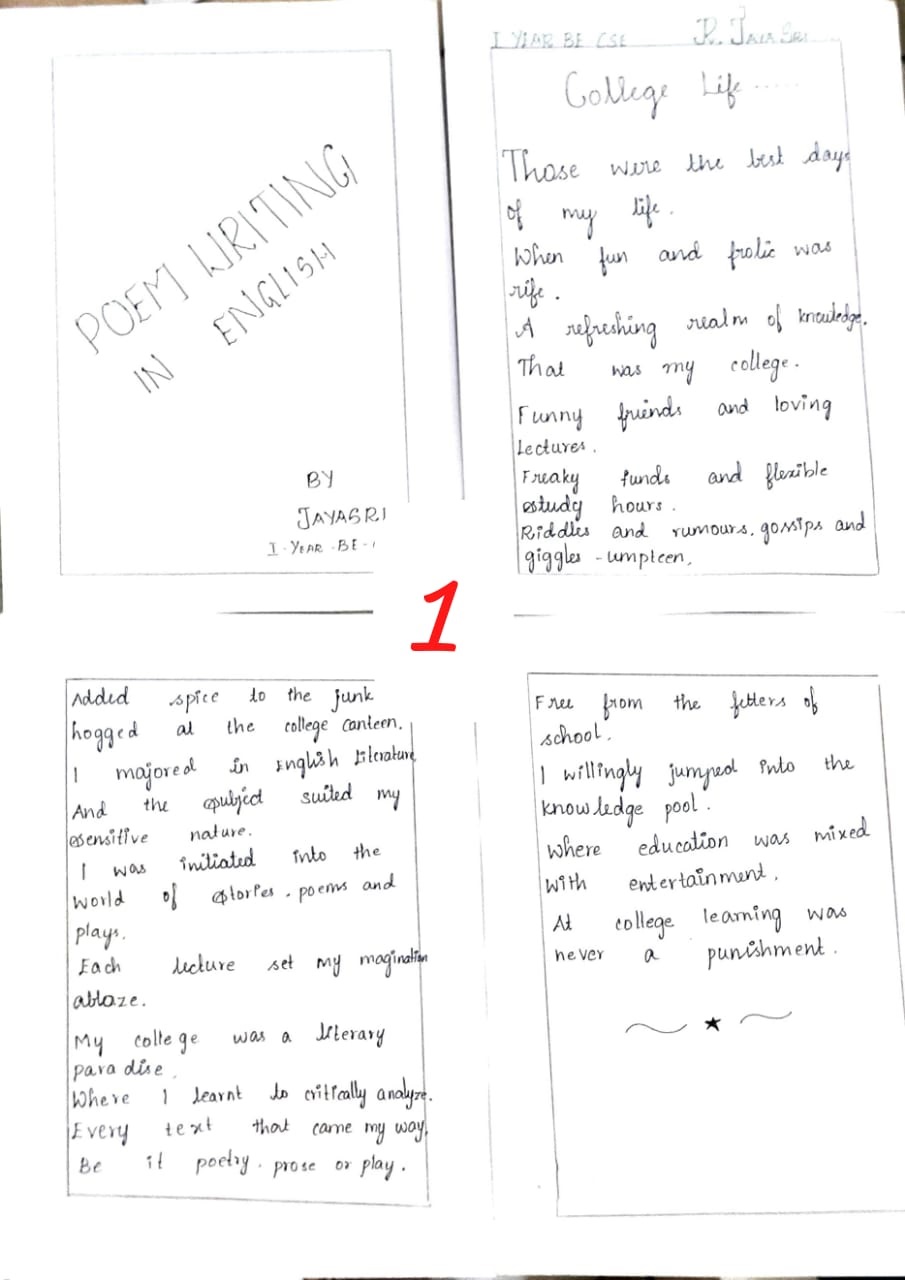 POEM WRITING
IN ENGLISH
BY
JAYASRI
I - YEAR - BE -
I YEAR BE CSE R. JAYA SRI
College Life .....
Those were the best days
of my life.
When fun and frolic was
rife.
A refreshing realm of knowledge.
That was my college.
Funny friends and loving
Lectures.
Freaky funds and flexible
study hours.
Riddles and rumours, gossips and
giggles - umpteen,
1
Added spice to the junk
hogged at the college canteen.
I majored in English Literature
And the subject suited my
sensitive nature.
I was initiated into the
World of stories, poems and
plays.
Each lecture set my magination
ablaze.
My college was a literary
paradise.
Where I learnt to critically analyze.
Every text that came my way,
Be it poetry, prose or play.
Free from the fetters of
school.
I willingly jumped into the
knowledge pool.
Where education was mixed
With entertainment.
At college learning was
never a punishment.